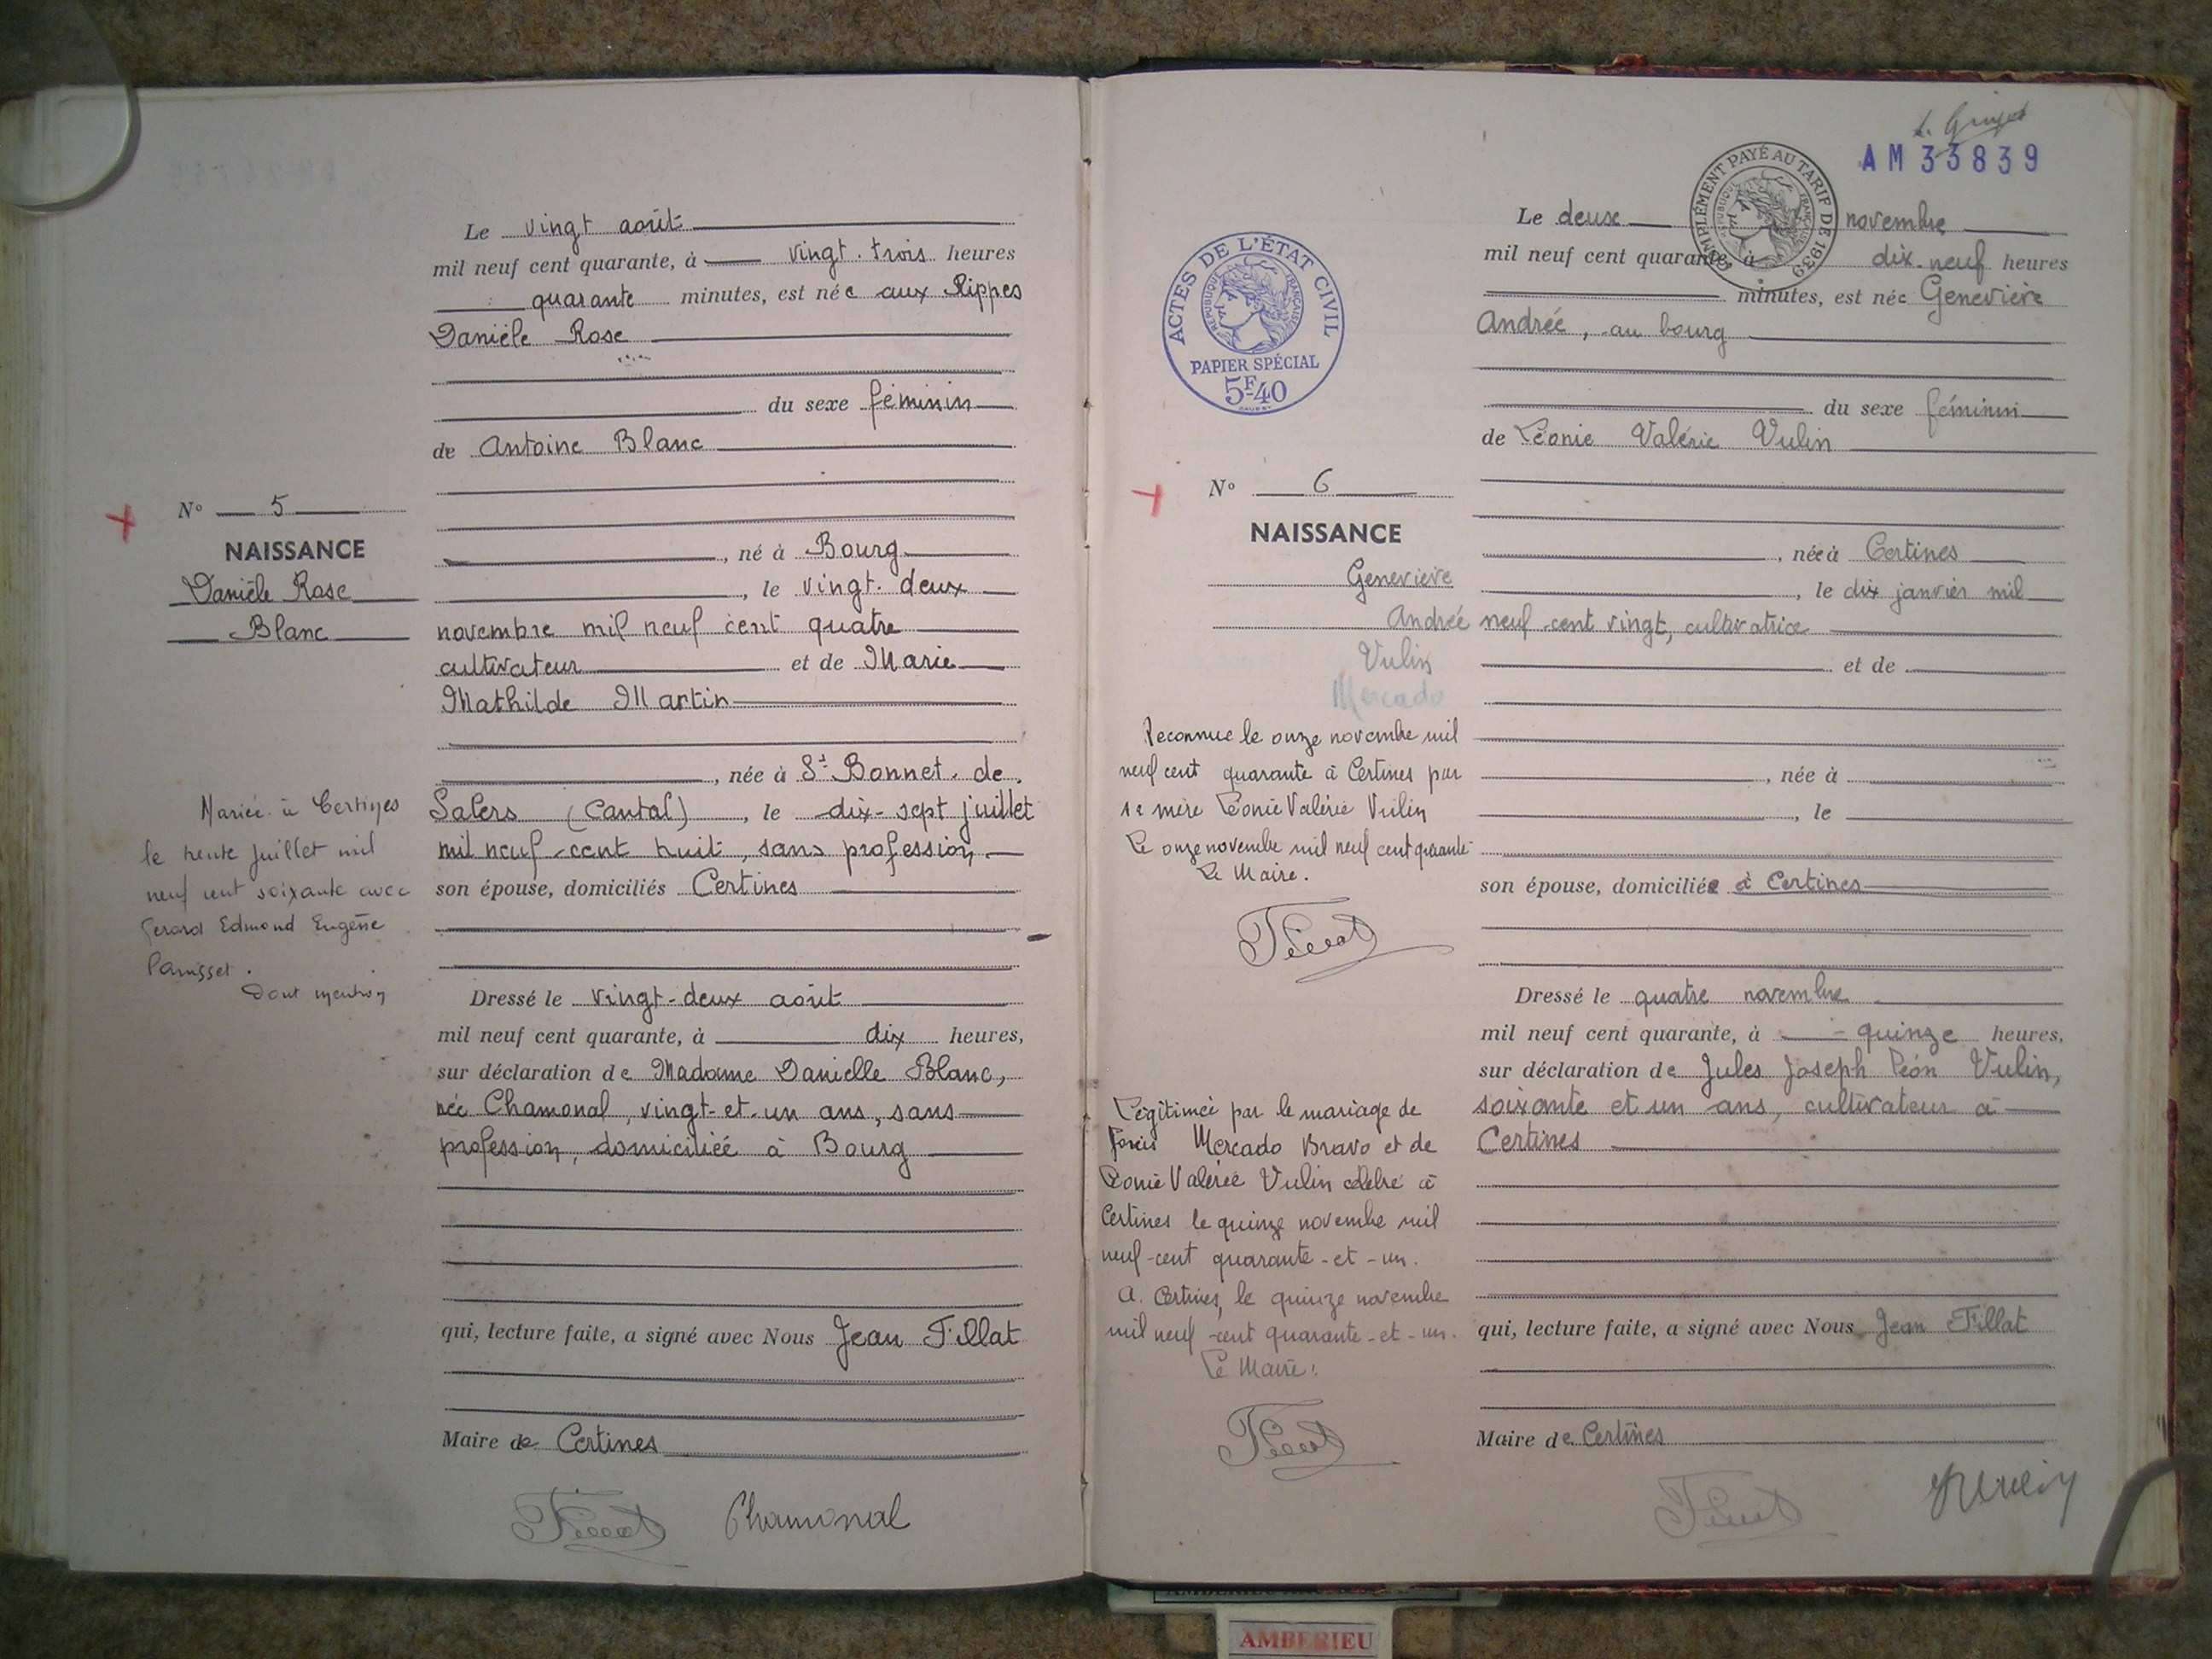 Le vingt août
mil neuf cent quarante, à vingt-trois heures
quarante minutes, est née aux Rippes
Danièle Rose
du sexe féminin
de Antoine Blanc
N° 5
NAISSANCE
Danièle Rose
Blanc
, né à Bourg
, le vingt-deux
novembre mil neuf cent quatre
cultivateur et de Marie
Mathilde Martin
, née à St Bonnet-de-
Salers (Cantal), le dix-sept juillet
mil neuf-cent huit, sans profession,
son épouse, domiciliés Certines
Mariée à Certines
le trente juillet mil
neuf cent soixante avec
Gerard Edmond Eugène
Dont mention
Dressé le vingt-deux août
mil neuf cent quarante, à dix heures,
sur déclaration de Madame Danielle Blanc,
née Chamonal, vingt-et-un ans, sans
profession, domiciliée à Bourg
qui, lecture faite, a signé avec Nous Jean Fillat
Maire de Certines
Chamonal
AM 33839
COMPLÉMENT PAYÉ AU TARIF DE 1939
RÉPUBLIQUE FRANÇAISE
Le deux novembre
mil neuf cent quarante, à dix-neuf heures
minutes, est née Geneviève
Andrée, au bourg
du sexe féminin
de Léonie Valérie Vulin
ACTES DE L'ÉTAT CIVIL
RÉPUBLIQUE FRANÇAISE
PAPIER SPÉCIAL
5F40
N° 6
NAISSANCE
Geneviève
Andrée
Vulin
Mercado
, née à Certines
, le dix janvier mil
neuf-cent vingt, cultivatrice
et de
, née à
, le
son épouse, domiciliée à Certines
Reconnue le onze novembre mil
neuf cent quarante à Certines par
sa mère Léonie Valérie Vulin
Le onze novembre mil neuf cent quarante
Le Maire.
Dressé le quatre novembre
mil neuf cent quarante, à quinze heures,
sur déclaration de Jules Joseph Léon Vulin,
soixante et un ans, cultivateur à
Certines
Légitimée par le mariage de
Mercado Bravo et de
Léonie Valérie Vulin célébré à
Certines le quinze novembre mil
neuf-cent quarante-et-un.
A Certines, le quinze novembre
mil neuf-cent quarante-et-un.
Le Maire:
qui, lecture faite, a signé avec Nous Jean Fillat
Maire de Certines
AMBERIEU